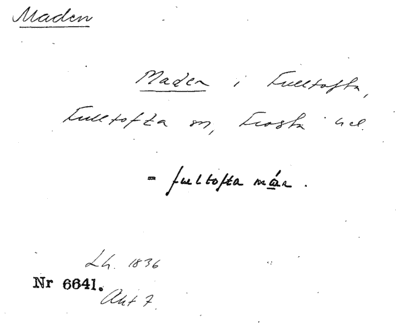 Maden
Maden i Fulltofta,
Fulltofta sn, Frosta hd.
= fultofta már.
Lh. 1836
Nr 6641.
Akt 7